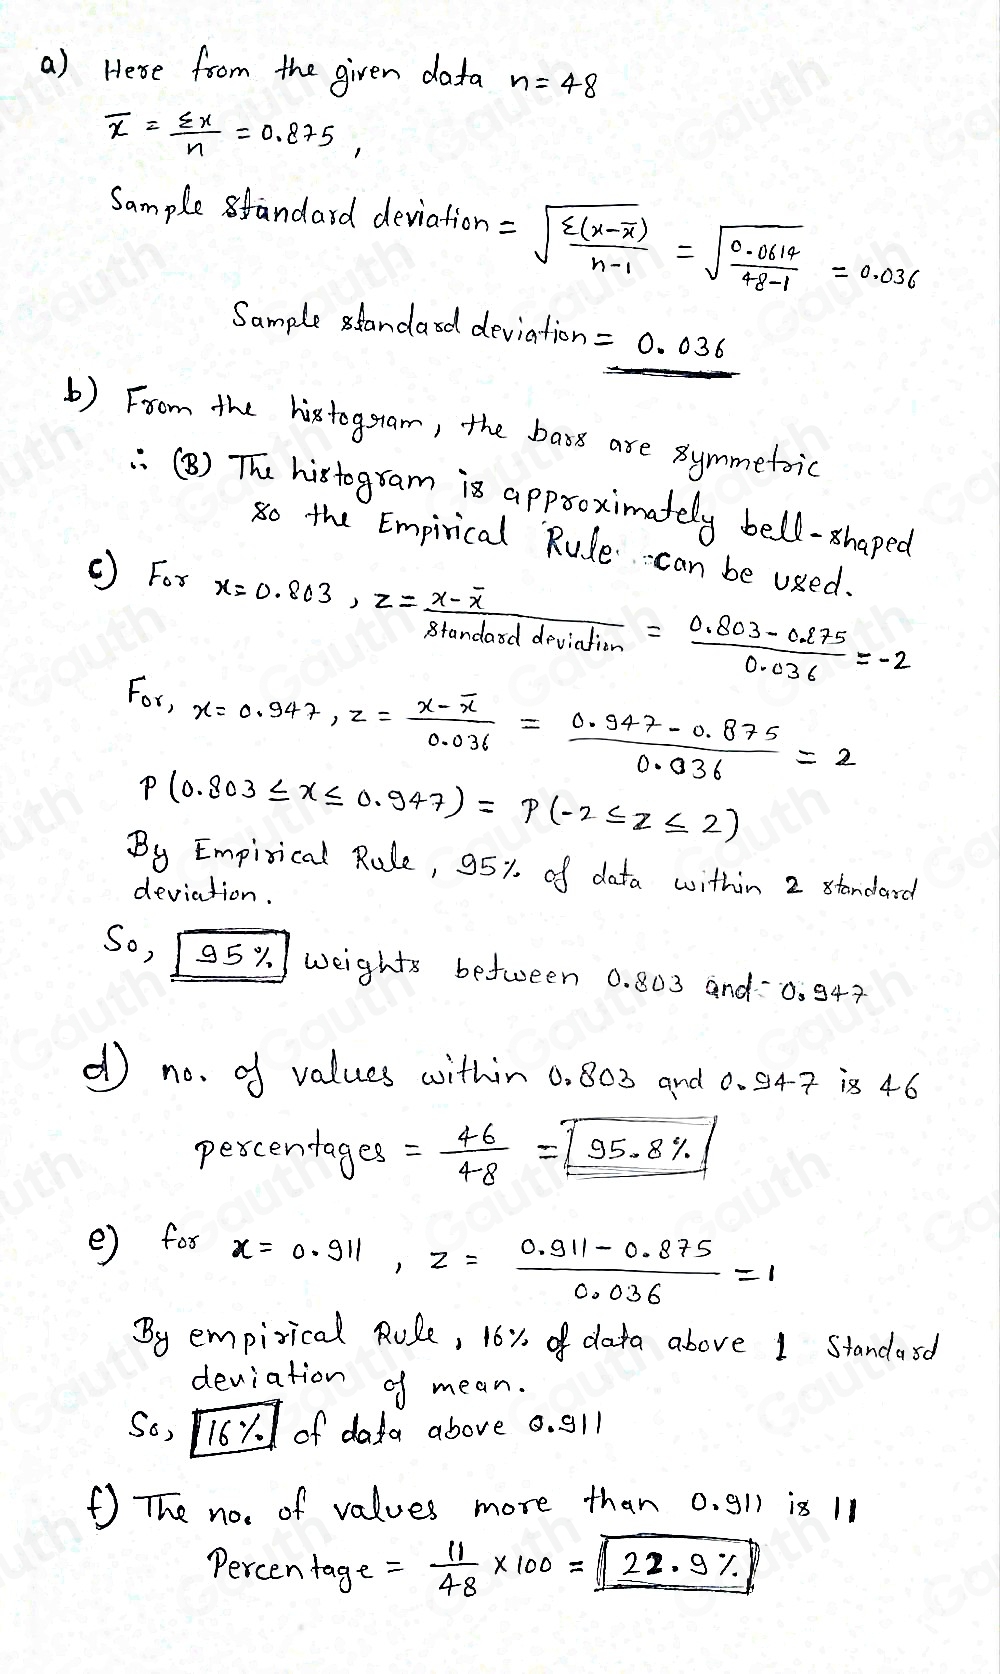 a) Here from the given data n = 48
x̄ = Σx/n = 0.875,
Sample standard deviation = √(Σ(x-x̄)/(n-1)) = √(0.0614/(48-1)) = 0.036
Sample standard deviation = 0.036
b) From the histogram, the bars are symmetric
∴ (B) The histogram is approximately bell-shaped
so the Empirical Rule can be used.
c) For x = 0.803, z = (x-x̄)/standard deviation = (0.803-0.875)/0.036 = -2
For, x = 0.947, z = (x-x̄)/0.036 = (0.947-0.875)/0.036 = 2
P(0.803 ≤ x ≤ 0.947) = P(-2 ≤ z ≤ 2)
By Empirical Rule, 95% of data within 2 standard
deviation.
So, 95% weights between 0.803 and 0.947
d) no. of values within 0.803 and 0.947 is 46
percentages = 46/48 = 95.8%
e) for x = 0.911, z = (0.911-0.875)/0.036 = 1
By empirical Rule, 16% of data above 1 Standard
deviation of mean.
So, 16% of data above 0.911
f) The no. of values more than 0.911 is 11
Percentage = 11/48 × 100 = 22.9%